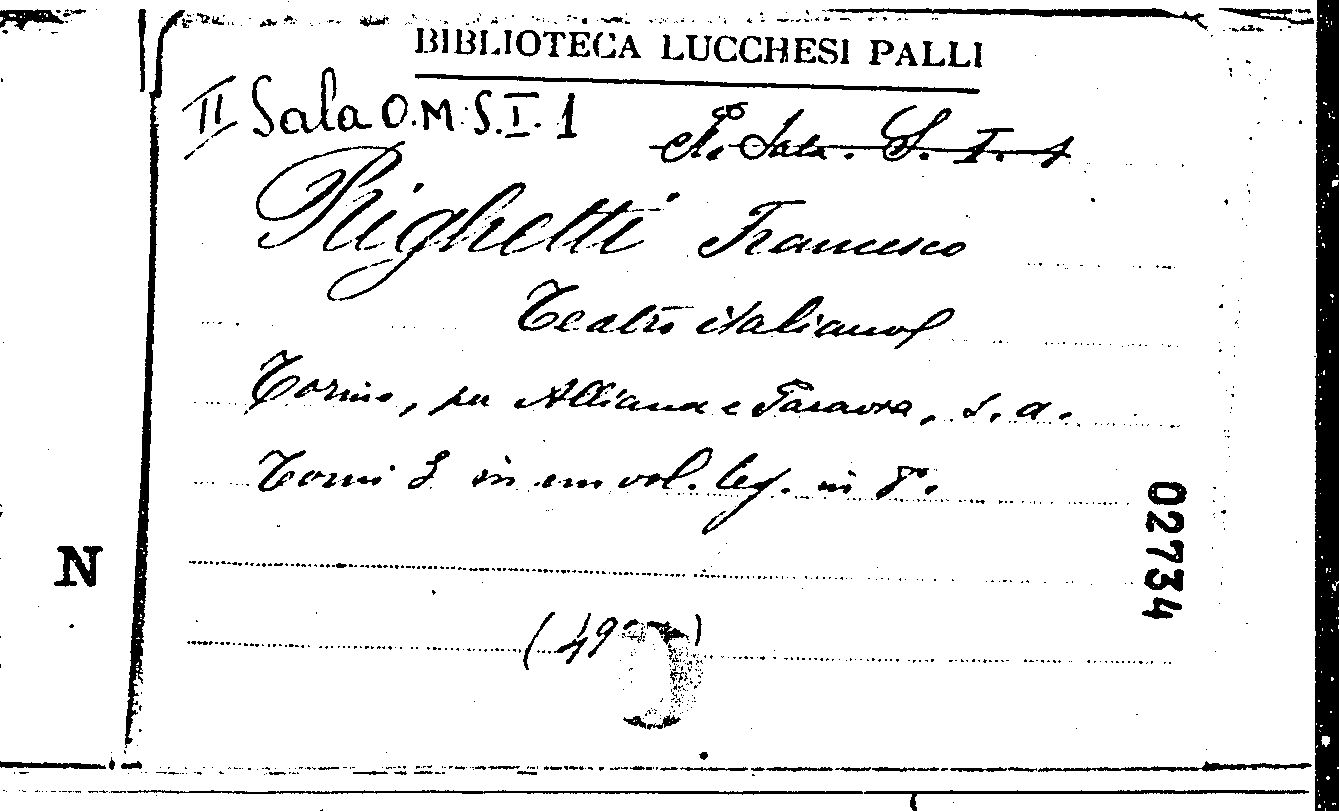 BIBLIOTECA LUCCHESI PALLI
II Sala O.M.S.I.1
Sala. S. I. 1
Righetti Francesco
Teatro italiano
Torino, per Alliana e Paravia, s. a.
Tomi 3 in un vol. leg. in 8°.
02734
N
(49 )